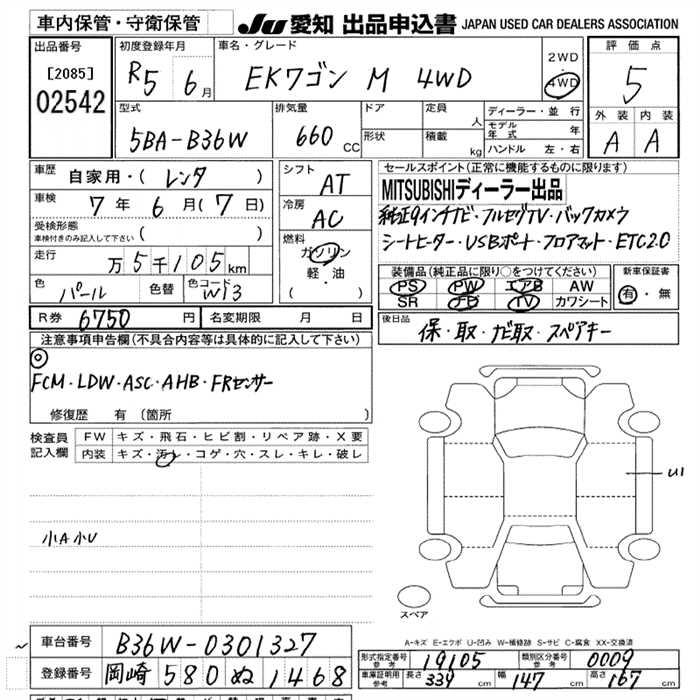 車内保管・守衛保管
JU 愛知 出品申込書 JAPAN USED CAR DEALERS ASSOCIATION
出品番号
[2085]
02542
初度登録年月
R5 6月
車名・グレード
EKワゴン M 4WD
2WD
・
4WD
評価点
5
外装 内装
A A
型式
5BA-B36W
排気量
660 CC
ドア
形状
定員 人
積載 kg
ディーラー・並行
モデル年式 年
ハンドル 左・右
車歴
自家用・( レンタ )
車検
7年6月(7日)
受検形態
車検付きのみ記入して下さい ( )
走行
万5千105km
色
パール
色替
色コード
W13
シフト
AT
冷房
AC
燃料
ガソリン
軽・油
( )
セールスポイント(正常に機能するものに限ります)
MITSUBISHIディーラー出品
純正9インチナビ・フルセグTV・バックカメラ
シートヒーター・USBポート・フロアマット・ETC2.0
装備品(純正品に限り○をつけてください)
PS PW エアB AW
SR ナビ TV カワシート
新車保証書
有・無
R券 6750 円
名変期限 月 日
後日品
保・取・ナビ取・スペアキー
注意事項申告欄(不具合内容等は具体的に記入して下さい)
◎
FCM・LDW・ASC・AHB・FRセンサー
修復歴 有(箇所 )
検査員
記入欄
FW キズ・飛石・ヒビ割・リペア跡・X要
内装 キズ・汚レ・コゲ・穴・スレ・キレ・破レ
U1
小A小U
スペア
A-キズ E-エクボ U-凹み W-補修跡 S-サビ C-腐食 XX-交換済
車台番号
B36W-0301327
登録番号
岡崎 580 ぬ 1468
形式指定番号
参考
19105
類別区分番号
参考
0009
車庫証明用
参考
長さ 339 cm
幅 147 cm
高さ 167 cm